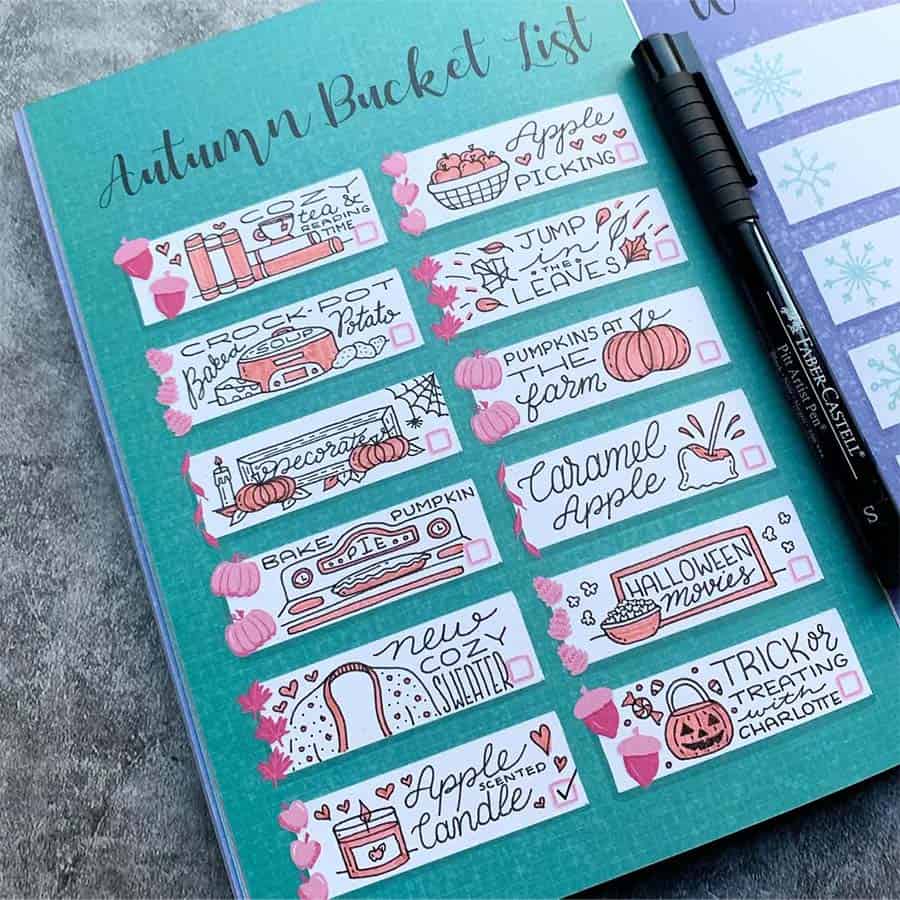 Autumn Bucket List
COZY
tea &
READING
TIME
CROCK-POT
SOUP
Baked Potato
Decorate
BAKE PUMPKIN
PIE
new
COZY
SWEATER
Apple
SCENTED
Candle
Apple
PICKING
JUMP
in
THE
LEAVES
PUMPKINS AT
THE
farm
Caramel
Apple
HALLOWEEN
movies
TRICK or
TREATING
with
CHARLOTTE
W
FABER-CASTELL
Pitt Artist Pen
S